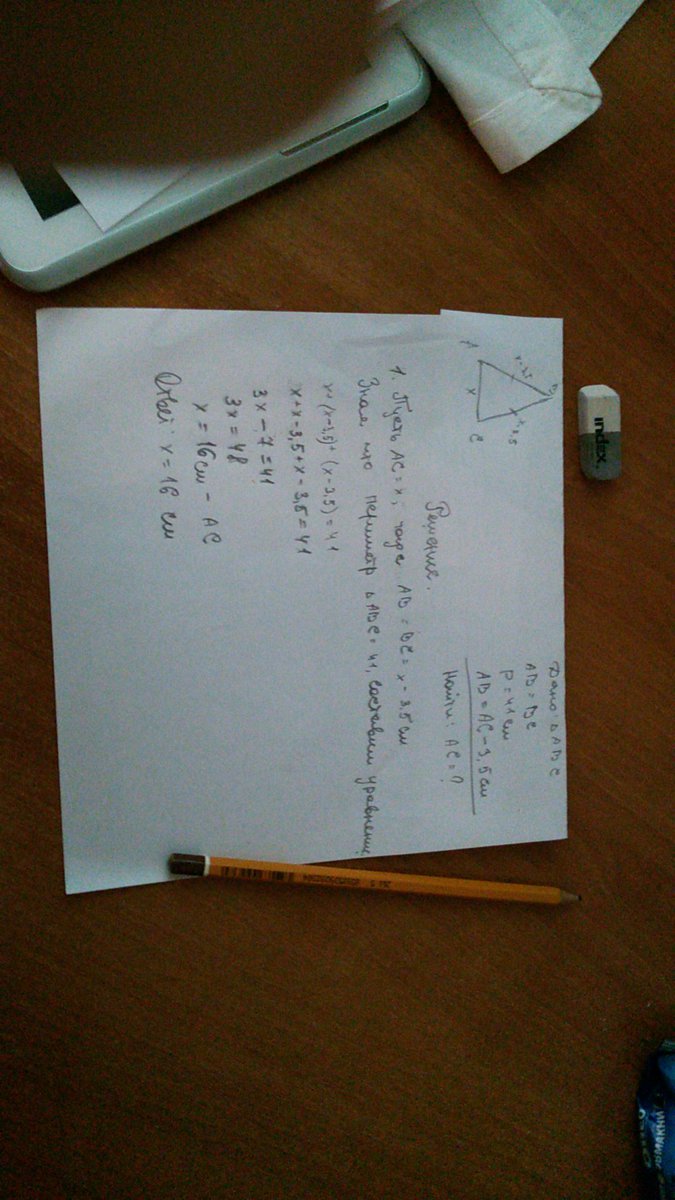 Дано: △ ABC
AB = BC
P = 41 см
AB = AC - 3,5 см
Найти: AC = ?
B
x - 3,5
x - 3,5
A
x
C
Решение.
1. Пусть AC = x, тогда AB = BC = x - 3,5 см
Зная, что периметр △ ABC = 41, составим уравнение
x + (x-3,5) + (x-3,5) = 41
x + x - 3,5 + x - 3,5 = 41
3x - 7 = 41
3x = 48
x = 16 см - AC
Ответ: x = 16 см
index.